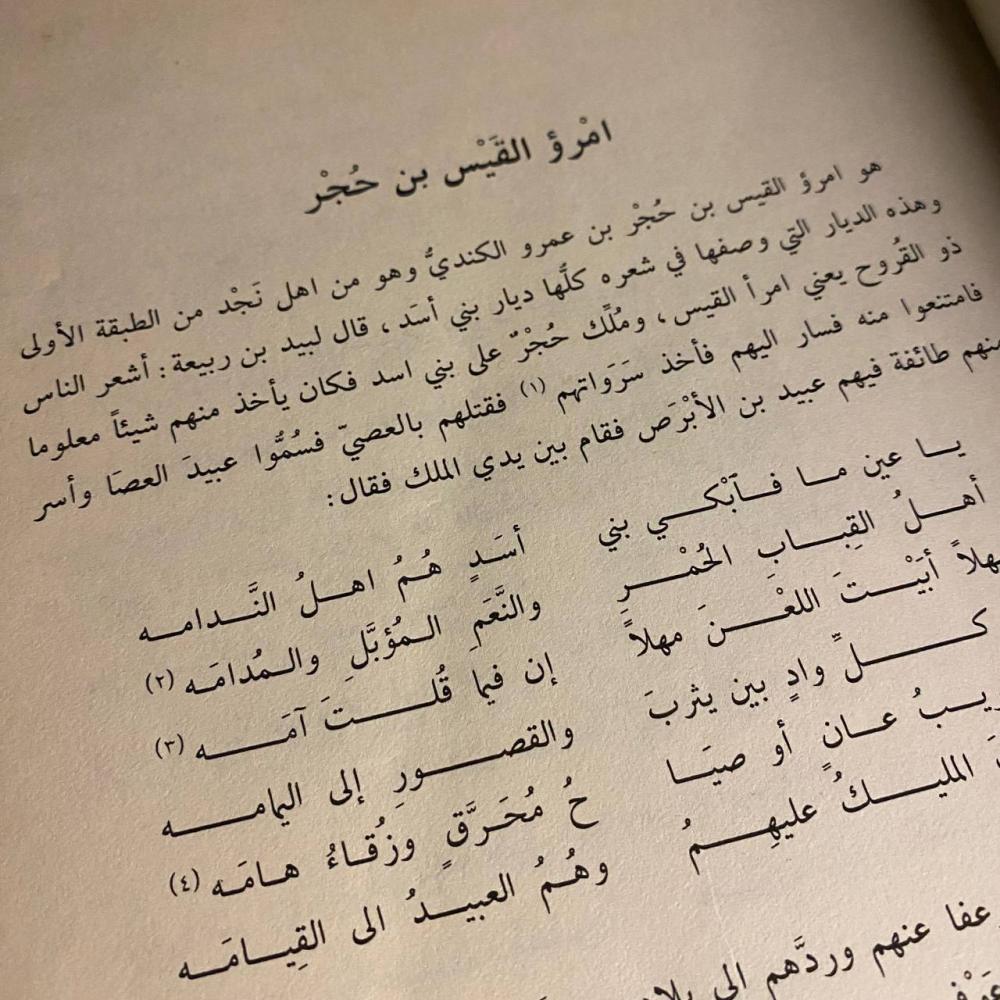 امْرؤ القَيْس بن حُجْر
هو امرؤ القيس بن حُجْر بن عمرو الكنديُّ وهو من اهل نَجْد من الطبقة الأولى
وهذه الديار التي وصفها في شعره كلُّها ديار بني أسَد ، قال لبيد بن ربيعة : أشعر الناس
ذو القُروح يعني امرأ القيس ، ومُلِّك حُجْرٌ على بني اسد فكان يأخذ منهم شيئاً معلوما
فامتنعوا منه فسار اليهم فأخذ سَرَوَاتهم (١) فقتلهم بالعصيّ فسُمُّوا عبيدَ العصَا وأسر
منهم طائفة فيهم عبيد بن الأبْرَص فقام بين يدي الملك فقال :
يـا عين مـا فـآبْكـي بني أسَـدٍ هُـمُ اهـلُ النَّـدامـه
أهـلُ القِبـابِ الحُمْـرِ والنَّعَمِ الـمُؤبَّلِ والـمُدامَـه (٢)
مهلاً أبَيْـتَ اللعْـنَ مهلاً إن فيما قُلـتَ آمَـه (٣)
كـلِّ وادٍ بين يثربَ والقصـورِ إلى اليمامـه
عـانٍ أو صيَـا حُ مُحَـرَّقٍ وزُقـاءُ هـامَـه (٤)
المليـكُ عليهِـمُ وهُـمُ العبيـدُ الى القِيـامَـه
عفا عنهم وردَّهم الى